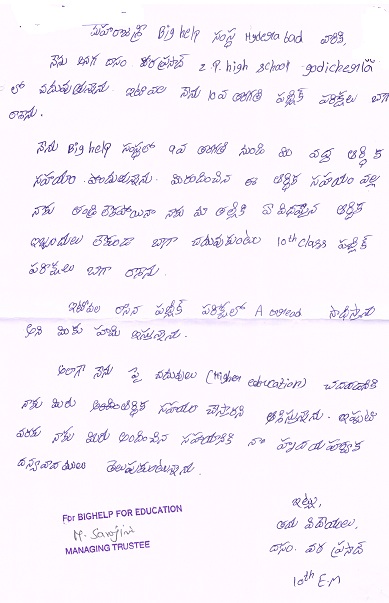 మహారాజశ్రీ Big help సంస్థ Hyderabad వారికి,
నేను అనగా దాసం వరప్రసాద్ z.p. high school godicherla
లో చదువుచున్నాను. ఇటీవల నేను 10వ తరగతి పబ్లిక్ పరీక్షలు బాగా
రాశాను.
నేను Big help సంస్థలో 9వ తరగతి నుండి మీ వద్ద ఆర్థిక
సహాయం పొందుతున్నాను. మీరందించిన ఈ ఆర్థిక సహాయం వల్ల
నాకు తండ్రి లేకపోయినా నాకు మా తల్లికి ఏ విధమైన ఆర్థిక
ఇబ్బందులు లేకుండా బాగా చదువుకుంటు 10th class పబ్లిక్
పరీక్షలు బాగా రాశాను.
ఇటీవల రాసిన పబ్లిక్ పరీక్షలో A సాధిస్తాను
అని మీకు హామీ ఇస్తున్నాను.
అలాగే నేను పై చదువులు (Higher education) చదవడానికి
నాకు మీరు ఆర్థిక సహాయం చేస్తారని ఆశిస్తున్నాను. ఇప్పటి
వరకు నాకు మీరు అందించిన సహాయానికి నా హృదయపూర్వక
ధన్యవాదములు తెలుపుకుంటున్నాను.
ఇట్లు,
తమ విదేయులు,
దాసం. వర ప్రసాద్
10th E.M
For BIGHELP FOR EDUCATION
M. Sarojini
MANAGING TRUSTEE